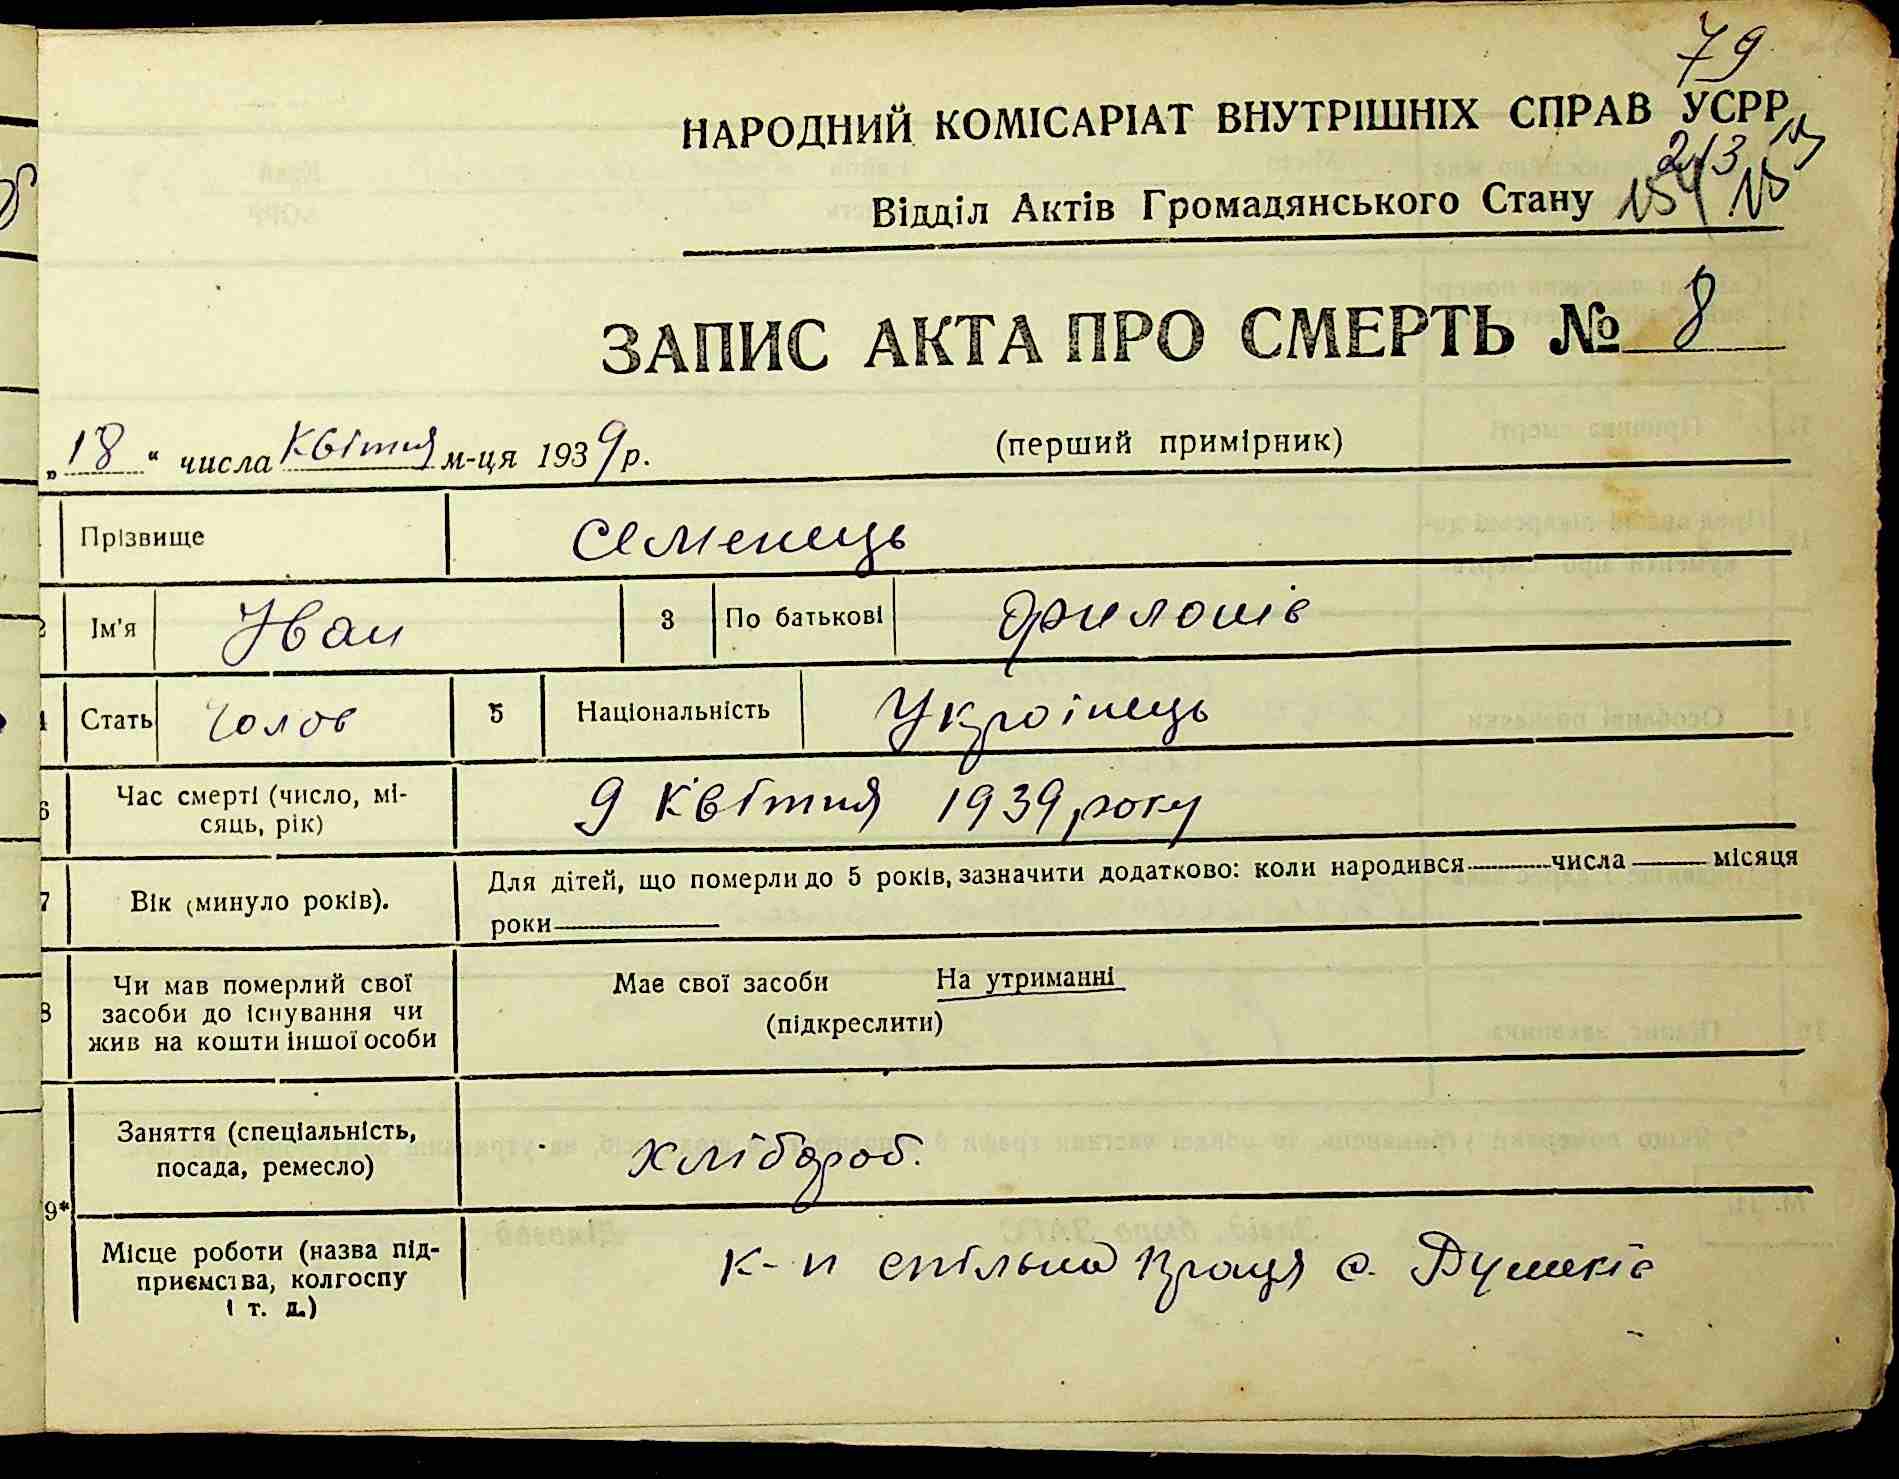 79
НАРОДНИЙ КОМІСАРІАТ ВНУТРІШНІХ СПРАВ УСРР
213
Відділ Актів Громадянського Стану 154
ЗАПИС АКТА ПРО СМЕРТЬ № 8
„18“ числа квітня м-ця 1939 р. (перший примірник)
Прізвище Семенець
2 Ім'я Іван 3 По батькові Филонів
4 Стать Чолов 5 Національність Украінець
6 Час смерті (число, мі-
сяць, рік) 9 квітня 1939 року
7 Вік (минуло років). Для дітей, що померли до 5 років, зазначити додатково: коли народився числа місяця
роки
8 Чи мав померлий свої
засоби до існування чи
жив на кошти іншої особи Має свої засоби На утриманні
(підкреслити)
Заняття (спеціальність,
посада, ремесло) хлібороб.
9*
Місце роботи (назва під-
приємства, колгоспу
і т. д.) к-п спільна праця с. Душків